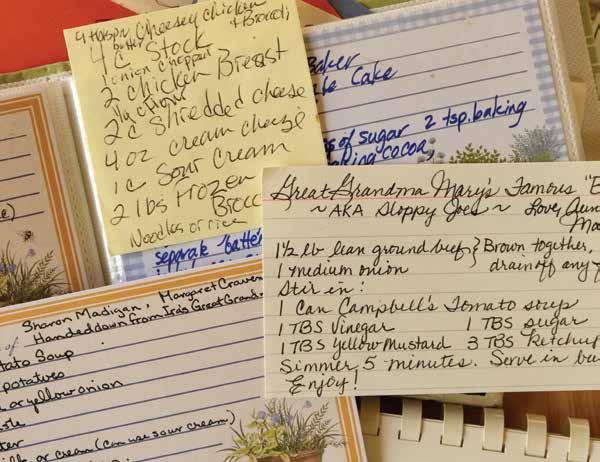 4 tbspn Cheesey chicken
butter & Broccoli
4 C Stock
1 onion chopped
2 chicken Breast
2 c Shredded cheese
4 oz cream cheese
1 c Sour Cream
2 lbs Frozen
Brocc
Noodles or rice
Baker
Cake
of sugar 2 tsp. baking
cocoa,
separate
Great Grandma Mary's Famous "B
~AKA Sloppy Joes~ Love, Aun
1½ lb lean ground beef } Brown together,
1 medium onion } drain off any
Stir in:
1 Can Campbell's Tomato soup
1 TBS Vinegar 1 TBS sugar
1 TBS Yellow Mustard 3 TBS Ketchup
Simmer 5 minutes. Serve in bu
Enjoy!
Sharon Madigan, Margaret Craven
of Handed down from Ira's Great Grand
tato Soup
potatoes
or yellow onion
or cream (can use sour cream)